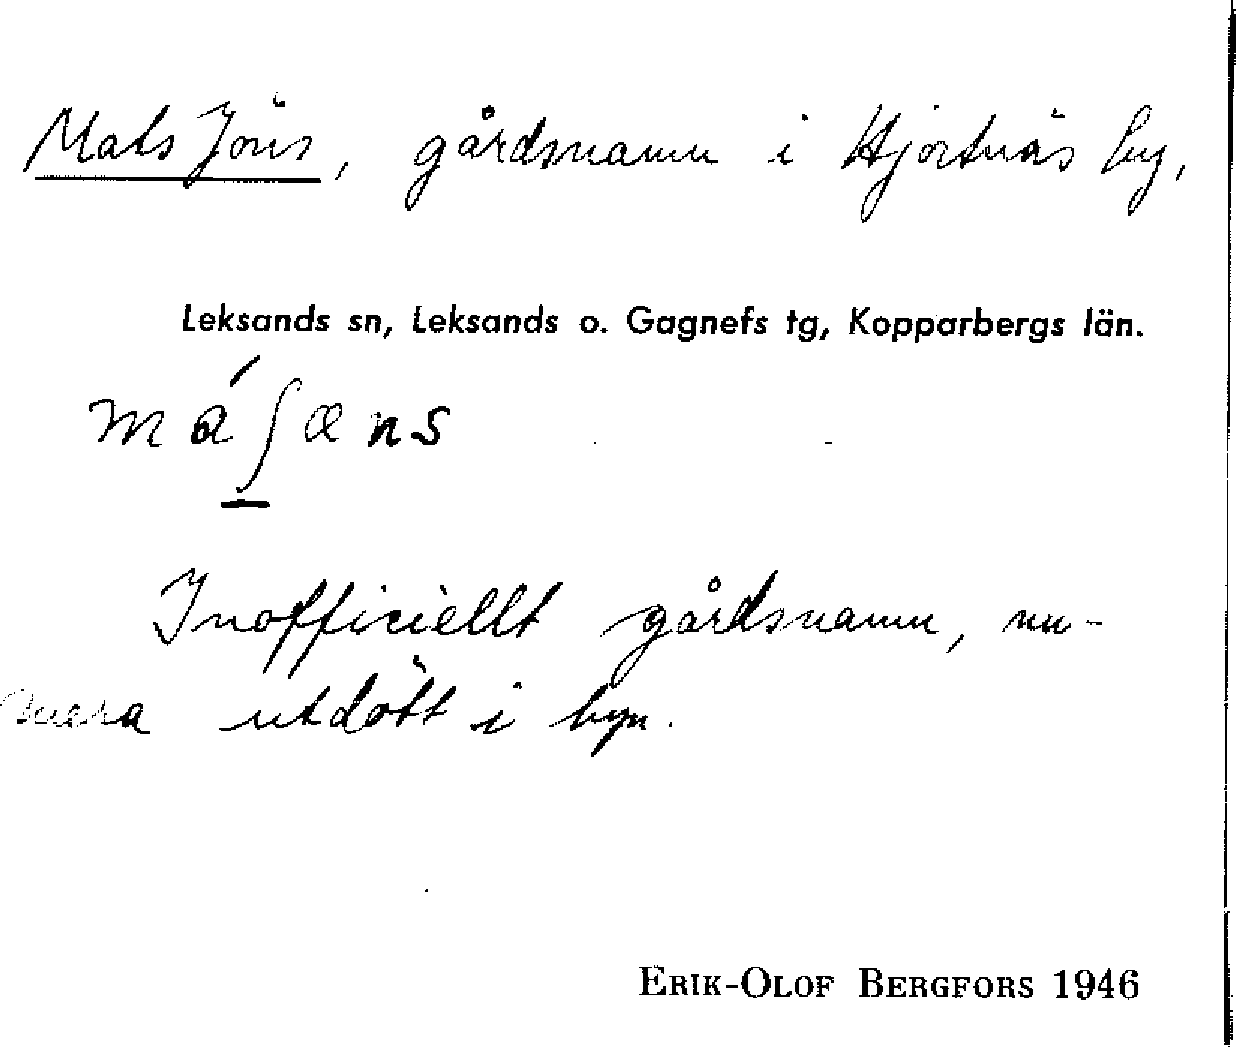 Mats Jöns, gårdsnamn i Hjortnäs by,
Leksands sn, Leksands o. Gagnefs tg, Kopparbergs län.
máʃœns
Inofficiellt gårdsnamn, nu-
mera utdött i byn.
ERIK-OLOF BERGFORS 1946